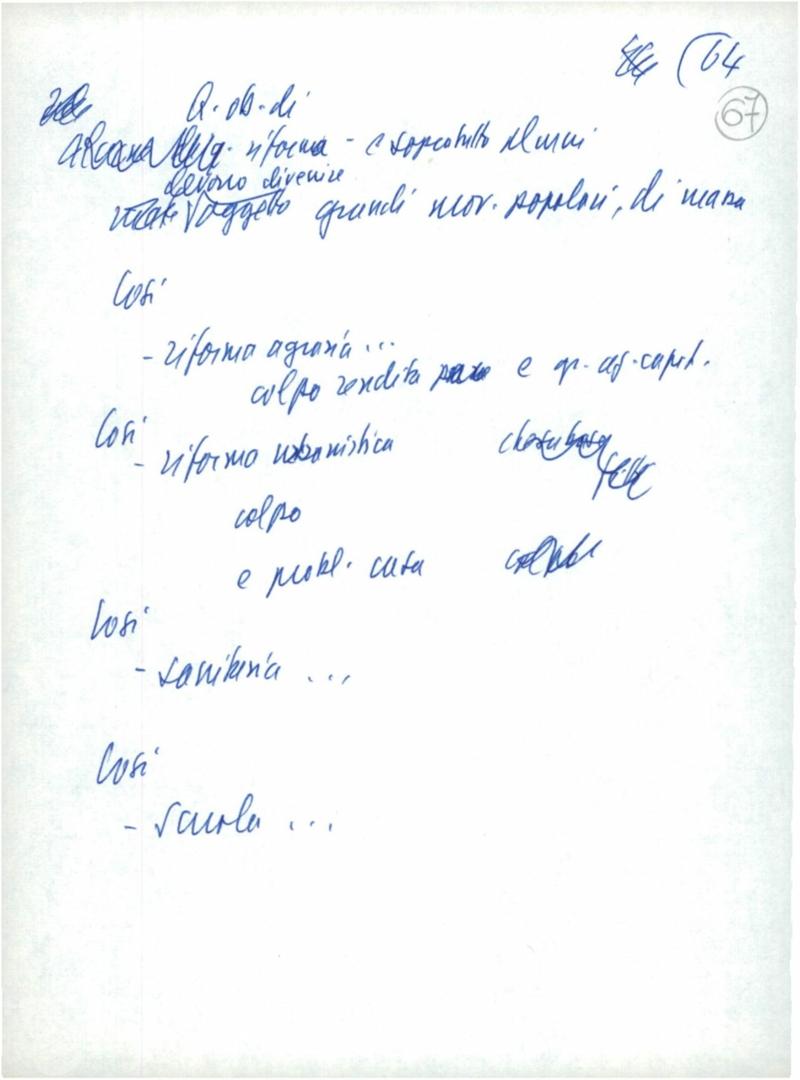 (64
67
Q. ob. di
riforma - e soprattutto alcuni
devono divenire
oggetto grandi mov. popolari, di massa
Così
- riforma agraria...
colpo rendita e gr. az. capit.
Così
- riforma urbanistica
colpo
e probl. casa
Così
- sanitaria ...
Così
- scuola ...